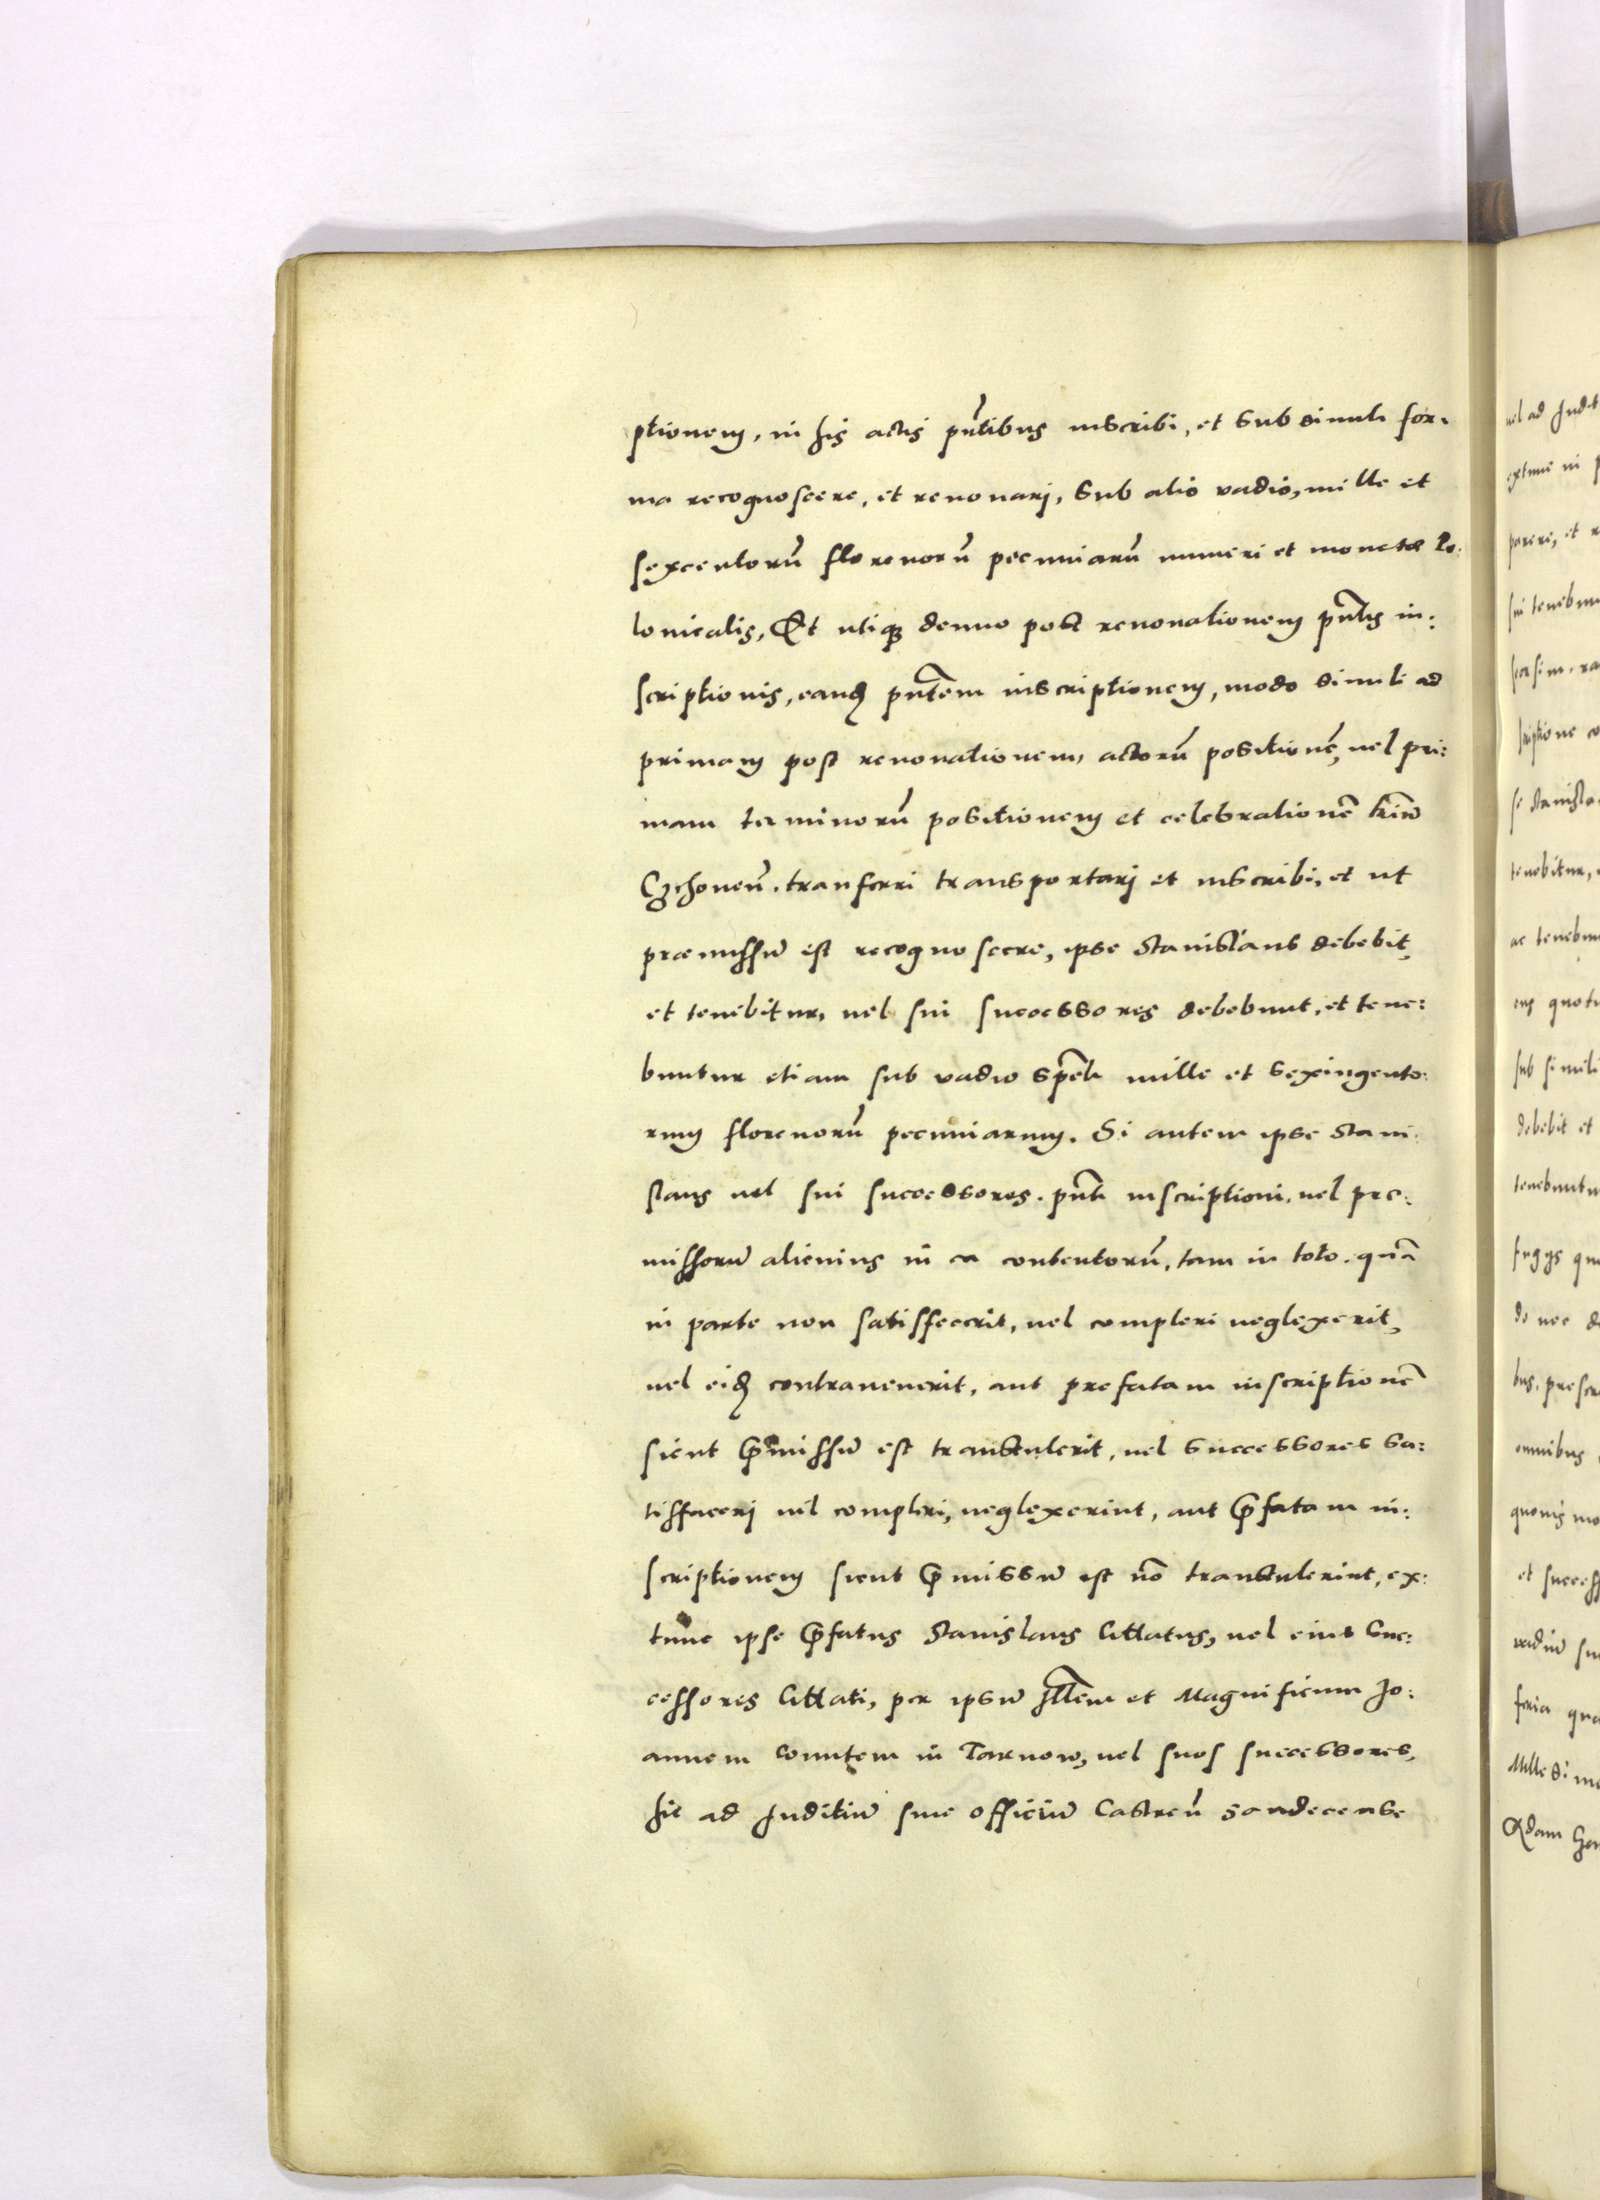 ptionem, in his actis pñtibus inscribi, et sub simili for-
ma recognoscere, et renovari, sub alio vadio, mille et
sexcentorũ florenorũ pecuniarũ numeri et monetæ Po:
lonicalis, Et utiq; denuo post renovationem pñtis in:
scriptionis, eand pñtem inscriptionem, modo simili ad
primam post renovationem, actorũ positionẽ, vel pri:
mam terminorũ positionem et celebrationẽ
Czchoveñ. tranferri transportari et inscribi, et ut
præmissũ est recognoscere, ipse Stanislaus debebit
et tenebitur, vel sui successores debebunt, et tene:
buntur etiam sub vadio mille et sexingento:
rum florenorũ pecuniarum. Si autem ipse Stani:
slaus vel sui successores. pñti inscriptioni, vel pre:
missorũ alicuius in ea contentorũ, tam in toto. quã
in parte non satisfecerit, vel compleri neglexerit,
vel eid contravenerit, aut prefatam inscriptionẽ
sicut p̃missũ est transtulerit, vel successores sa:
tisfaceri vel compleri, neglexerint, aut p̃fatam in:
scriptionem sicut p̃missũ est nõ transtulerint, ex:
tunc ipse p̃fatus Stanislaus Cittatus, vel eius suc:
cessores Cittati, per ipsũ Illẽm et Magnificum Jo:
annem Comitem in Tarnow, vel suos successores,
hic ad Juditiũ sive officiũ Castreñ Sandecense

vel ad Judit
extunc in p
parere, et
sui tenebun
scriptione co
se Stanisla
tenebitur,
ac tenebun
eus quotu
sub simili
debebit et
tenebuntu
do nec d
bus, prescr
omnibus
quovis mo
et success
vadiũ su
feria qua
Millesi
Adam